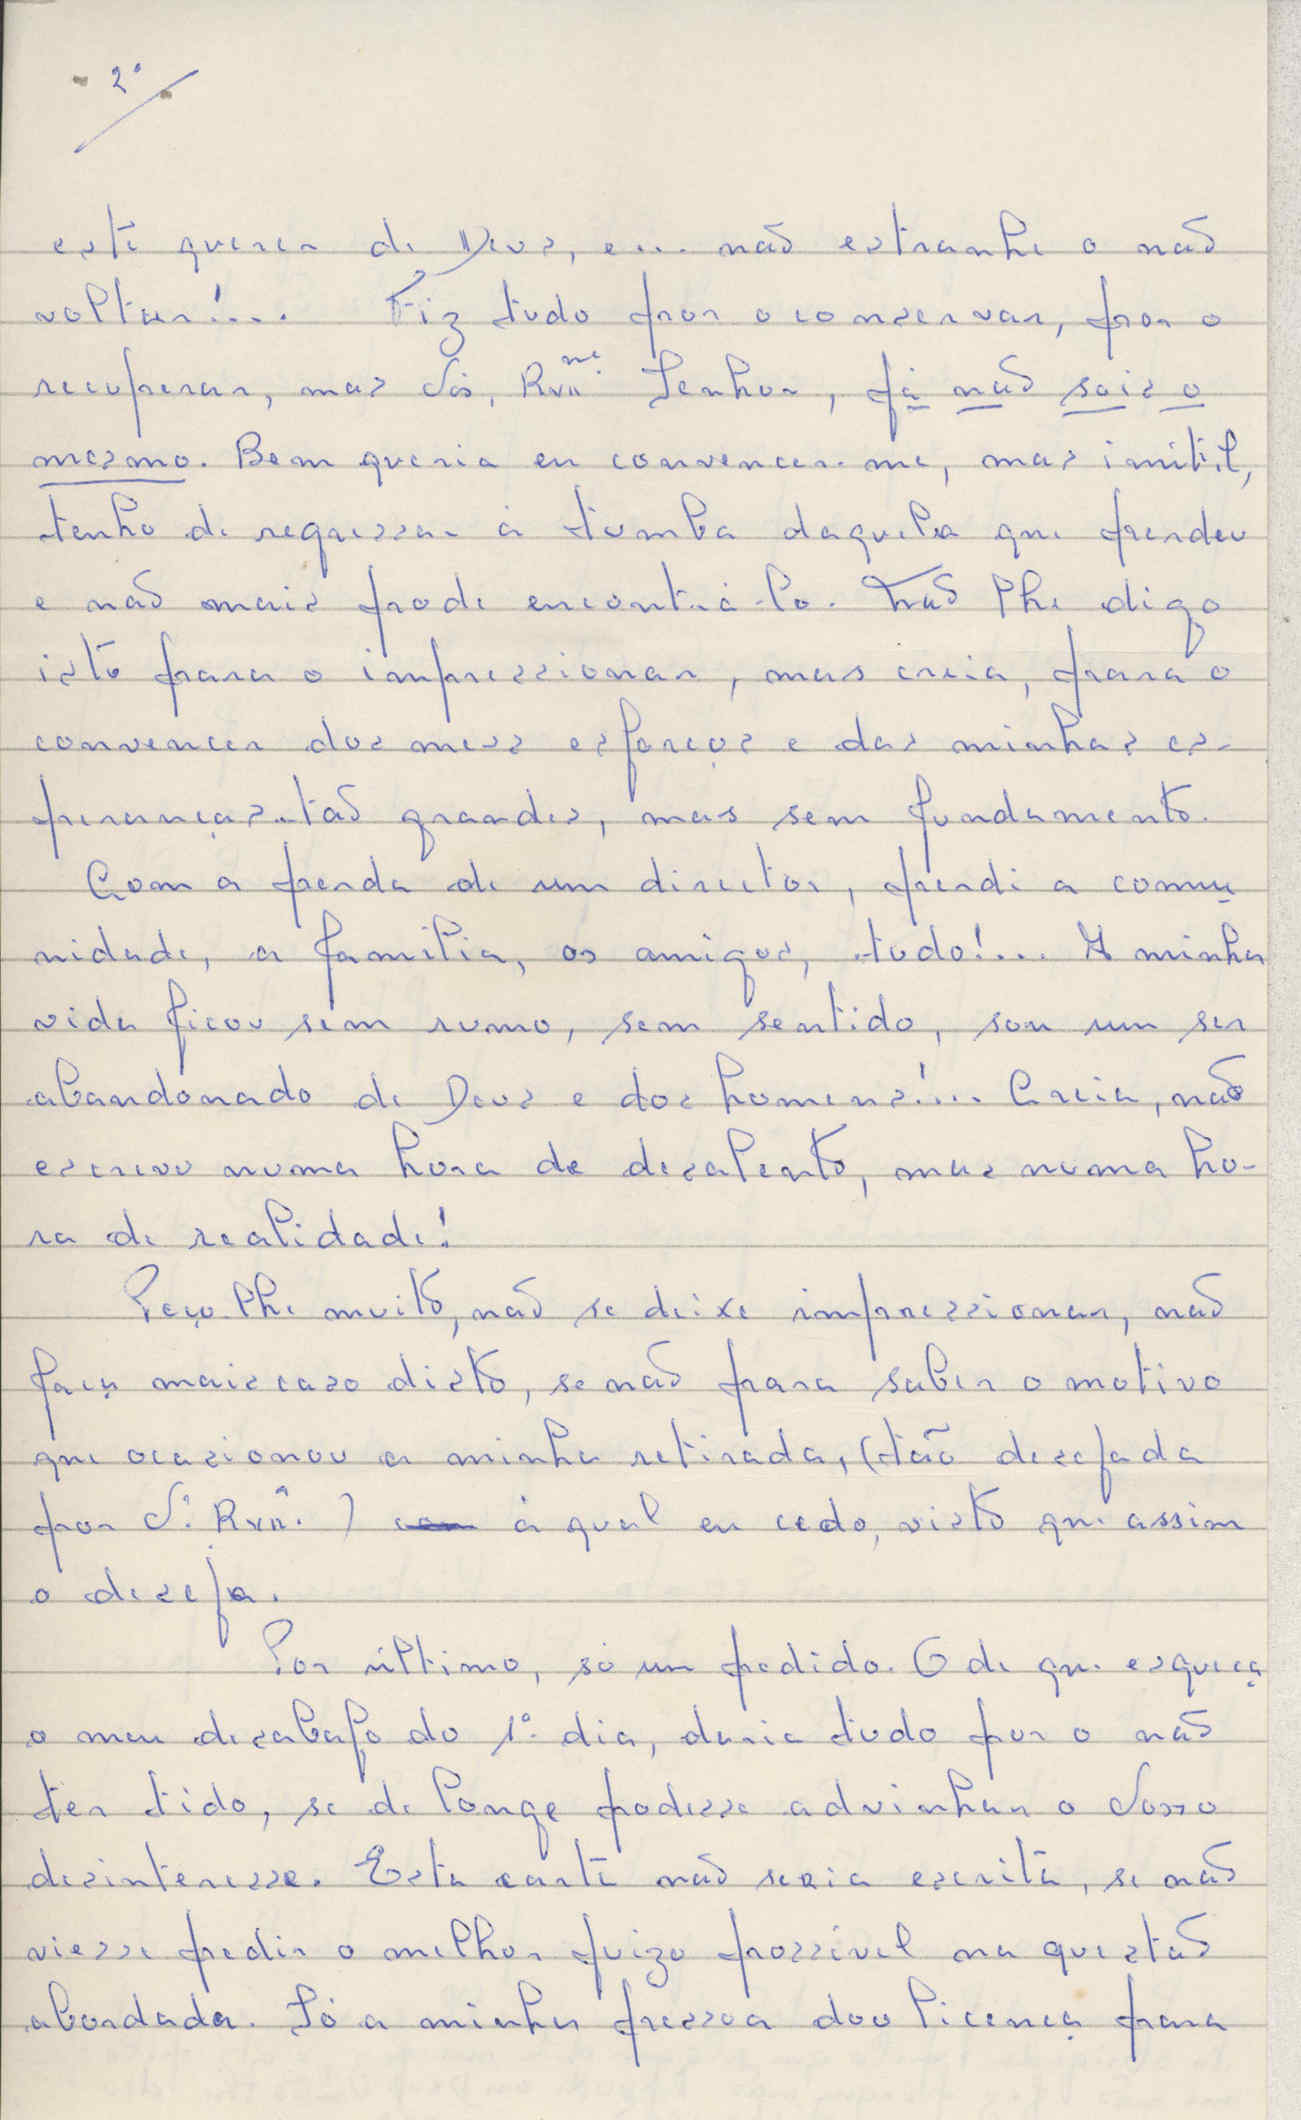 2º
este querer de Deus, e... não estranhe o não
voltar!... Fiz tudo por o conservar, por o
recuperar, mas Vós, Rvmº. Senhor, já não sois o
mesmo. Bem queria eu convencer-me, mas inútil,
tenho de regressar à tumba daquela que perdeu
e não mais pode encontrá-lo. Não lhe digo
isto para o impressionar, mas creia, para o
convencer dos meus esforços e das minhas es-
peranças tão grandes, mas sem fundamento.
Com a perda de um director, perdi a comu
nidade, a família, os amigos, tudo!... A minha
vida ficou sem rumo, sem sentido, sou um ser
abandonado de Deus e dos homens!... Creia, não
escrevo numa hora de desalento, mas numa ho-
ra de realidade!
Peço lhe muito, não se deixe impressionar, não
faça mais caso disto, se não para saber o motivo
que ocasionou a minha retirada, (tão desejada
por Vª. Rvª.) com à qual eu cedo, visto que assim
o deseja.
Por último, só um pedido. O de que esqueça
o meu desabafo do 1º dia, daria tudo por o não
ter tido, se de longe podesse advinhar o Vosso
desinteresse. Esta carta não seria escrita, se não
viesse pedir o melhor juizo possível na questão
abordada. Só a minha pessoa dou licença para